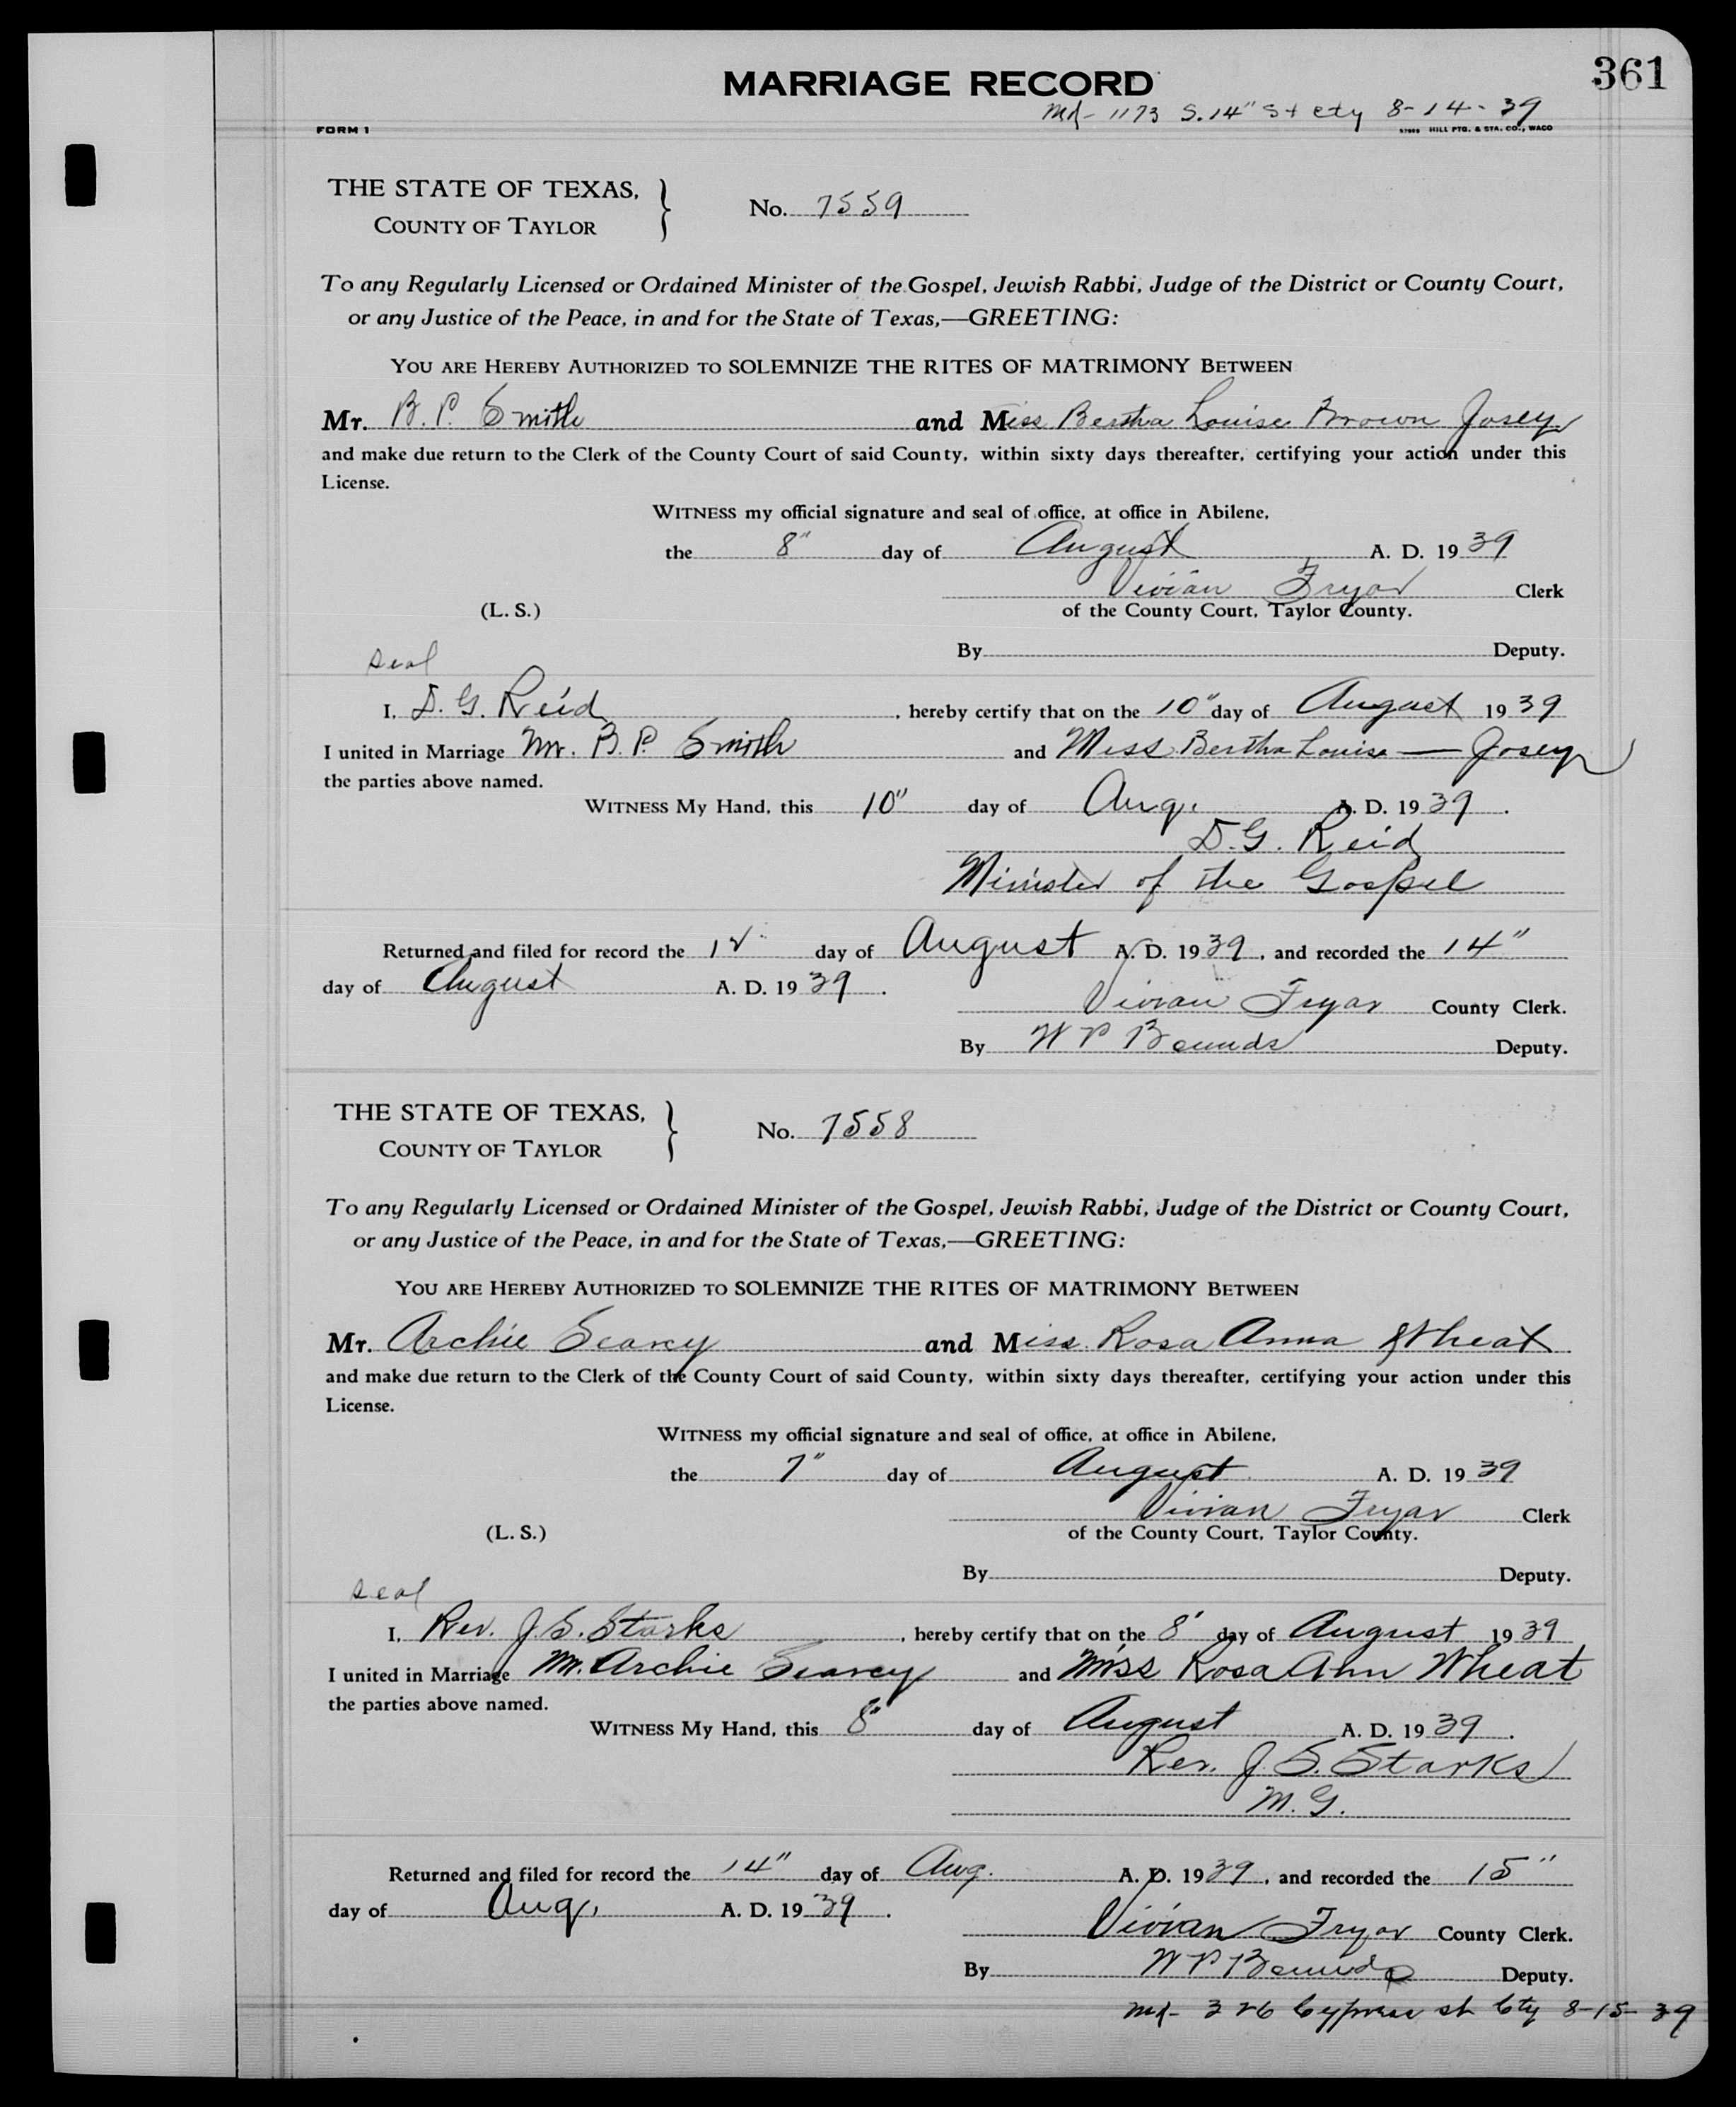 361
MARRIAGE RECORD
Md- 1173 S. 14" St City 8-14-39
FORM 1 HILL PTG. & STA. CO., WACO
THE STATE OF TEXAS,
COUNTY OF TAYLOR } No. 7559
To any Regularly Licensed or Ordained Minister of the Gospel, Jewish Rabbi, Judge of the District or County Court,
or any Justice of the Peace, in and for the State of Texas,—GREETING:
YOU ARE HEREBY AUTHORIZED TO SOLEMNIZE THE RITES OF MATRIMONY BETWEEN
Mr. B. P. Smith and Miss Bertha Louise Brown Josey
and make due return to the Clerk of the County Court of said County, within sixty days thereafter, certifying your action under this
License.
WITNESS my official signature and seal of office, at office in Abilene,
the 8" day of August A. D. 1939
Vivian Fryar Clerk
(L. S.) of the County Court, Taylor County.
By Deputy.
seal
I, D. G. Reid, hereby certify that on the 10" day of August 1939
I united in Marriage Mr. B. P. Smith and Miss Bertha Louise — Josey
the parties above named.
WITNESS My Hand, this 10" day of Aug. A. D. 1939.
D. G. Reid
Minister of the Gospel
Returned and filed for record the 12 day of August A. D. 1939, and recorded the 14"
day of August A. D. 1939.
Vivian Fryar County Clerk.
By W P Bounds Deputy.
THE STATE OF TEXAS,
COUNTY OF TAYLOR } No. 7558
To any Regularly Licensed or Ordained Minister of the Gospel, Jewish Rabbi, Judge of the District or County Court,
or any Justice of the Peace, in and for the State of Texas,—GREETING:
YOU ARE HEREBY AUTHORIZED TO SOLEMNIZE THE RITES OF MATRIMONY BETWEEN
Mr. Archie Searcy and Miss Rosa Anna Wheat
and make due return to the Clerk of the County Court of said County, within sixty days thereafter, certifying your action under this
License.
WITNESS my official signature and seal of office, at office in Abilene,
the 7" day of August A. D. 1939
Vivian Fryar Clerk
(L. S.) of the County Court, Taylor County.
By Deputy.
seal
I, Rev. J. S. Starks, hereby certify that on the 8" day of August 1939
I united in Marriage Mr. Archie Searcy and Miss Rosa Ann Wheat
the parties above named.
WITNESS My Hand, this 8" day of August A. D. 1939.
Rev. J. S. Starks
M. G.
Returned and filed for record the 14" day of Aug. A. D. 1939, and recorded the 15"
day of Aug. A. D. 1939.
Vivian Fryar County Clerk.
By W P Bounds Deputy.
Md- 326 Cypress st Cty 8-15-39